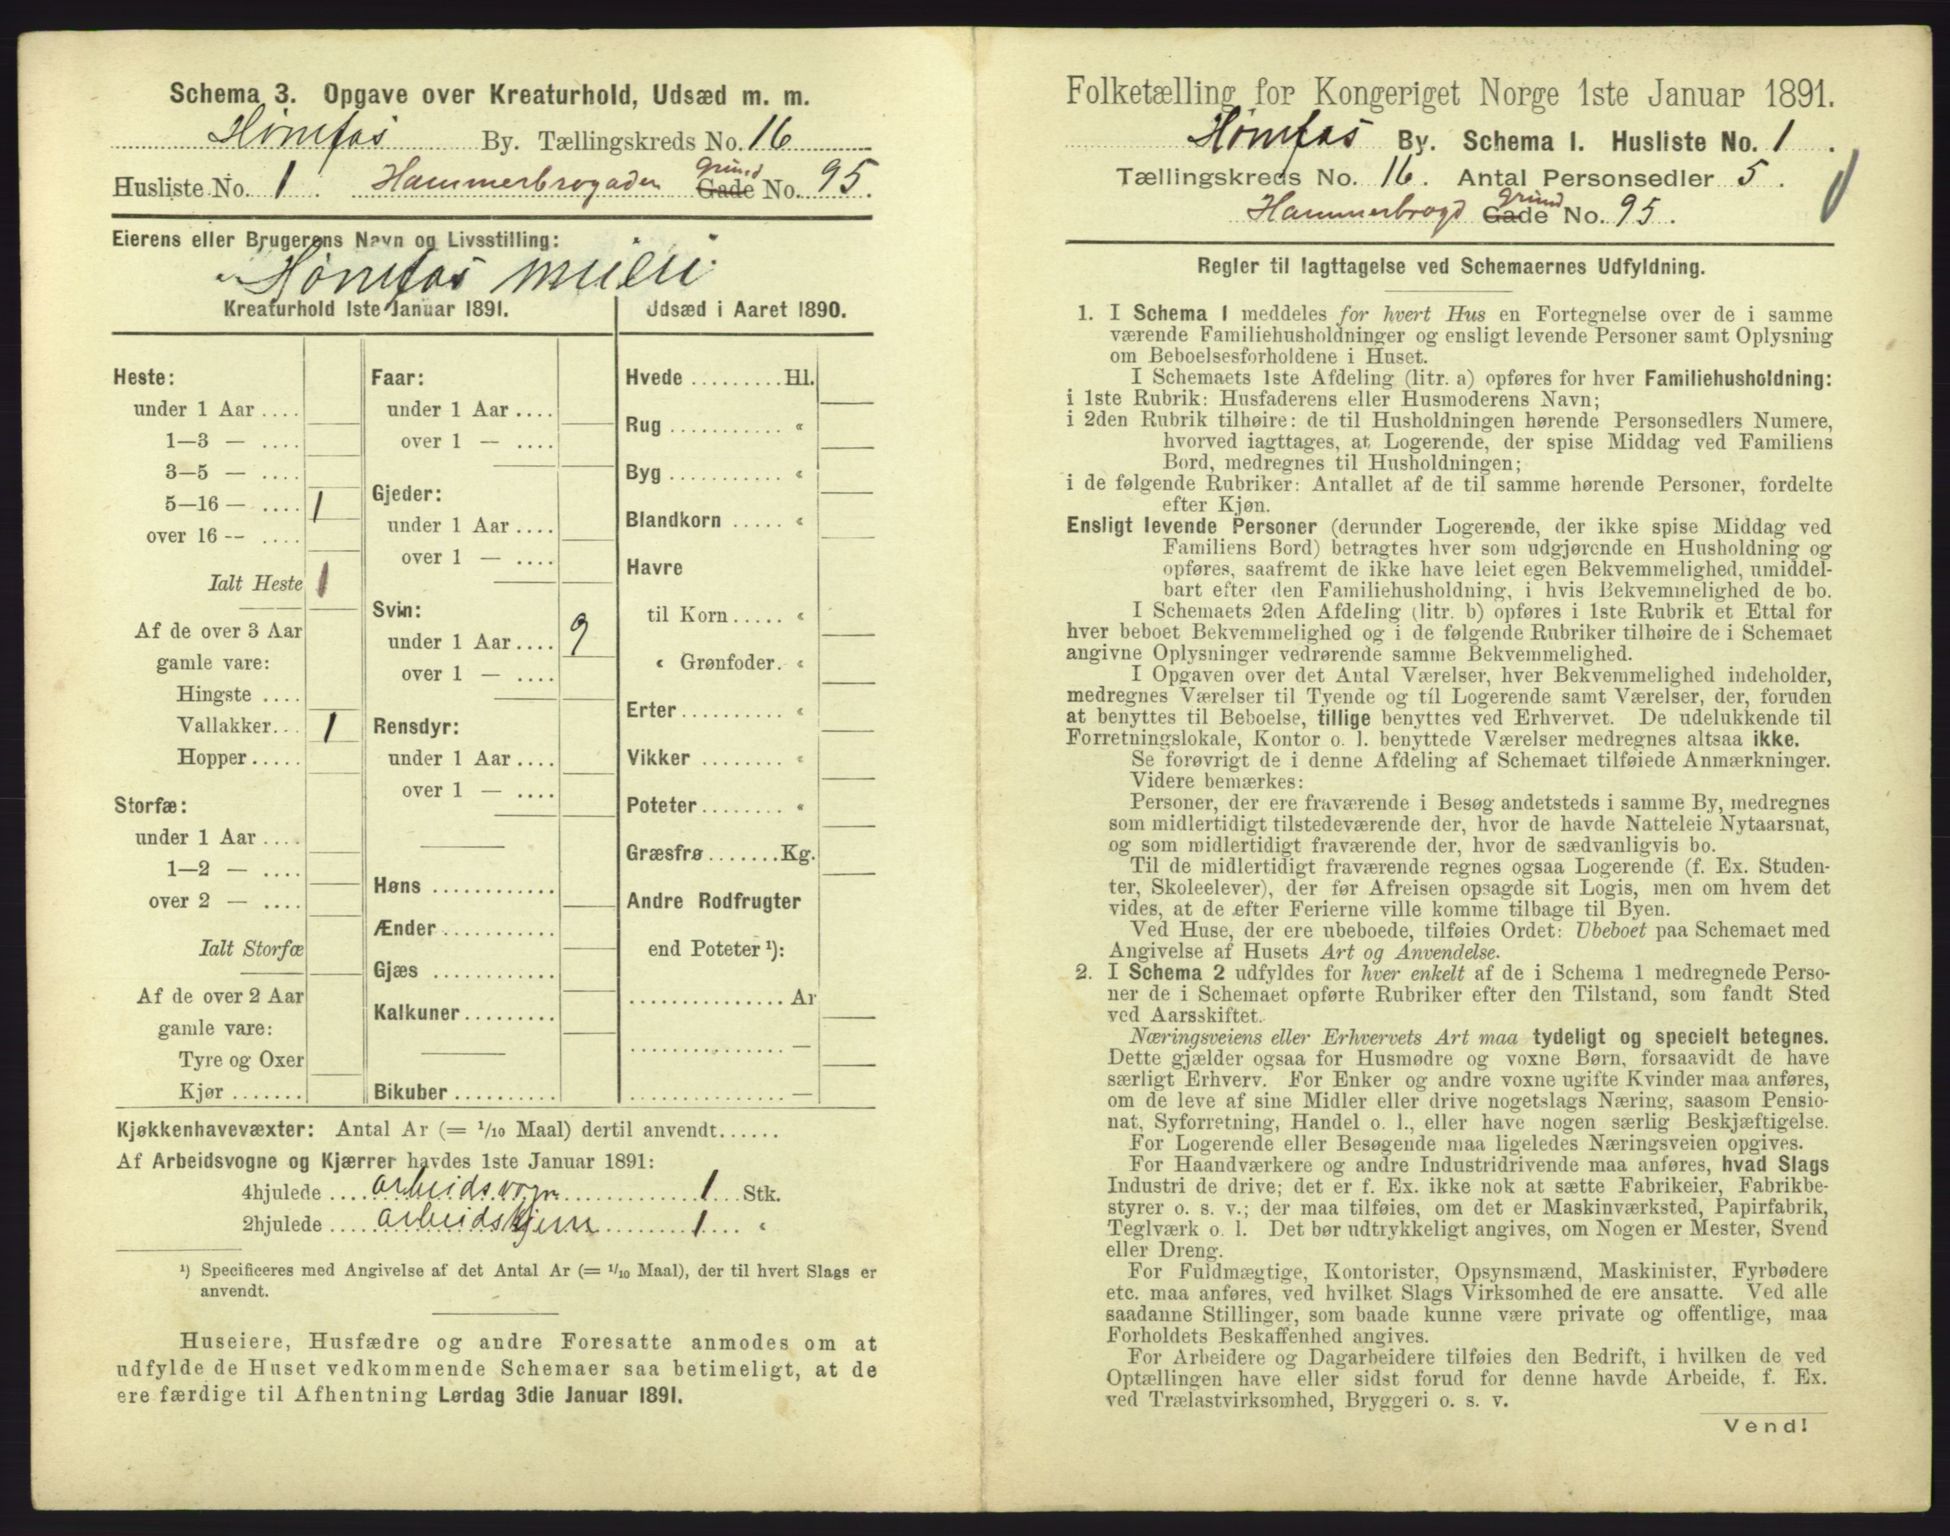 Schema 3. Opgave over Kreaturhold, Udsæd m. m.
Hønefos By. Tællingskreds No. 16
Husliste No. 1. Hammerbrogaden Grund Gade No. 95.
Eierens eller Brugerens Navn og Livsstilling:
Hønefos
Kreaturhold 1ste Januar 1891.
Heste:
under 1 Aar ....
1—3 — ....
3—5 — ....
5—16 — .... 1
over 16 -- ....
Ialt Heste 1
Af de over 3 Aar
gamle vare:
Hingste ....
Vallakker... 1
Hopper.....
Storfæ:
under 1 Aar ....
1—2 — ....
over 2 — ....
Ialt Storfæ
Af de over 2 Aar
gamle vare:
Tyre og Oxer
Kjør .......
Faar:
under 1 Aar ....
over 1 — ....
Gjeder:
under 1 Aar ....
over 1 — ....
Svin:
under 1 Aar .... 9
over 1 — ....
Rensdyr:
under 1 Aar ....
over 1 — ....
Høns ..........
Ænder ..........
Gjæs ..........
Kalkuner.........
Bikuber ..........
Udsæd i Aaret 1890.
Hvede .........Hl.
Rug .......... «
Byg .......... «
Blandkorn ..... «
Havre
til Korn ..... «
« Grønfoder. «
Erter ......... «
Vikker ........ «
Poteter ........ «
Græsfrø .......Kg.
Andre Rodfrugter
end Poteter ¹):
............... Ar
............... —
............... —
Kjøkkenhavevæxter: Antal Ar (= 1/10 Maal) dertil anvendt......
Af Arbeidsvogne og Kjærrer havdes 1ste Januar 1891:
4hjulede .... arbeidsvogn 1 Stk.
2hjulede .... arbeidskjerre 1 «
¹) Specificeres med Angivelse af det Antal Ar (= 1/10 Maal), der til hvert Slags er
anvendt.
Huseiere, Husfædre og andre Foresatte anmodes om at
udfylde de Huset vedkommende Schemaer saa betimeligt, at de
ere færdige til Afhentning Lørdag 3die Januar 1891.
Folketælling for Kongeriget Norge 1ste Januar 1891.
Hønefos By. Schema I. Husliste No. 1.
Tællingskreds No. 16. Antal Personsedler 5.
Hammerbrogd Grund Gade No. 95.
Regler til Iagttagelse ved Schemaernes Udfyldning.
1. I Schema I meddeles for hvert Hus en Fortegnelse over de i samme
værende Familiehusholdninger og ensligt levende Personer samt Oplysning
om Beboelsesforholdene i Huset.
I Schemaets 1ste Afdeling (litr. a) opføres for hver Familiehusholdning:
i 1ste Rubrik: Husfaderens eller Husmoderens Navn;
i 2den Rubrik tilhøire: de til Husholdningen hørende Personsedlers Numere,
hvorved iagttages, at Logerende, der spise Middag ved Familiens
Bord, medregnes til Husholdningen;
i de følgende Rubriker: Antallet af de til samme hørende Personer, fordelte
efter Kjøn.
Ensligt levende Personer (derunder Logerende, der ikke spise Middag ved
Familiens Bord) betragtes hver som udgjørende en Husholdning og
opføres, saafremt de ikke have leiet egen Bekvemmelighed, umiddel-
bart efter den Familiehusholdning, i hvis Bekvemmelighed de bo.
I Schemaets 2den Afdeling (litr. b) opføres i 1ste Rubrik et Ettal for
hver beboet Bekvemmelighed og i de følgende Rubriker tilhøire de i Schemaet
angivne Oplysninger vedrørende samme Bekvemmelighed.
I Opgaven over det Antal Værelser, hver Bekvemmelighed indeholder,
medregnes Værelser til Tyende og til Logerende samt Værelser, der, foruden
at benyttes til Beboelse, tillige benyttes ved Erhvervet. De udelukkende til
Forretningslokale, Kontor o. l. benyttede Værelser medregnes altsaa ikke.
Se forøvrigt de i denne Afdeling af Schemaet tilføiede Anmærkninger.
Videre bemærkes:
Personer, der ere fraværende i Besøg andetsteds i samme By, medregnes
som midlertidigt tilstedeværende der, hvor de havde Natteleie Nytaarsnat,
og som midlertidigt fraværende der, hvor de sædvanligvis bo.
Til de midlertidigt fraværende regnes ogsaa Logerende (f. Ex. Studen-
ter, Skoleelever), der før Afreisen opsagde sit Logis, men om hvem det
vides, at de efter Ferierne ville komme tilbage til Byen.
Ved Huse, der ere ubeboede, tilføies Ordet: Ubeboet paa Schemaet med
Angivelse af Husets Art og Anvendelse.
2. I Schema 2 udfyldes for hver enkelt af de i Schema 1 medregnede Perso-
ner de i Schemaet opførte Rubriker efter den Tilstand, som fandt Sted
ved Aarsskiftet.
Næringsveiens eller Erhvervets Art maa tydeligt og specielt betegnes.
Dette gjælder ogsaa for Husmødre og voxne Børn, forsaavidt de have
særligt Erhverv. For Enker og andre voxne ugifte Kvinder maa anføres,
om de leve af sine Midler eller drive nogetslags Næring, saasom Pensio-
nat, Syforretning, Handel o. l., eller have nogen særlig Beskjæftigelse.
For Logerende eller Besøgende maa ligeledes Næringsveien opgives.
For Haandværkere og andre Industridrivende maa anføres, hvad Slags
Industri de drive; det er f. Ex. ikke nok at sætte Fabrikeier, Fabrikbe-
styrer o. s. v.; der maa tilføies, om det er Maskinværksted, Papirfabrik,
Teglværk o. l. Det bør udtrykkeligt angives, om Nogen er Mester, Svend
eller Dreng.
For Fuldmægtige, Kontorister, Opsynsmænd, Maskinister, Fyrbødere
etc. maa anføres, ved hvilket Slags Virksomhed de ere ansatte. Ved alle
saadanne Stillinger, som baade kunne være private og offentlige, maa
Forholdets Beskaffenhed angives.
For Arbeidere og Dagarbeidere tilføies den Bedrift, i hvilken de ved
Optællingen have eller sidst forud for denne havde Arbeide, f. Ex.
ved Trælastvirksomhed, Bryggeri o. s. v.
Vend!